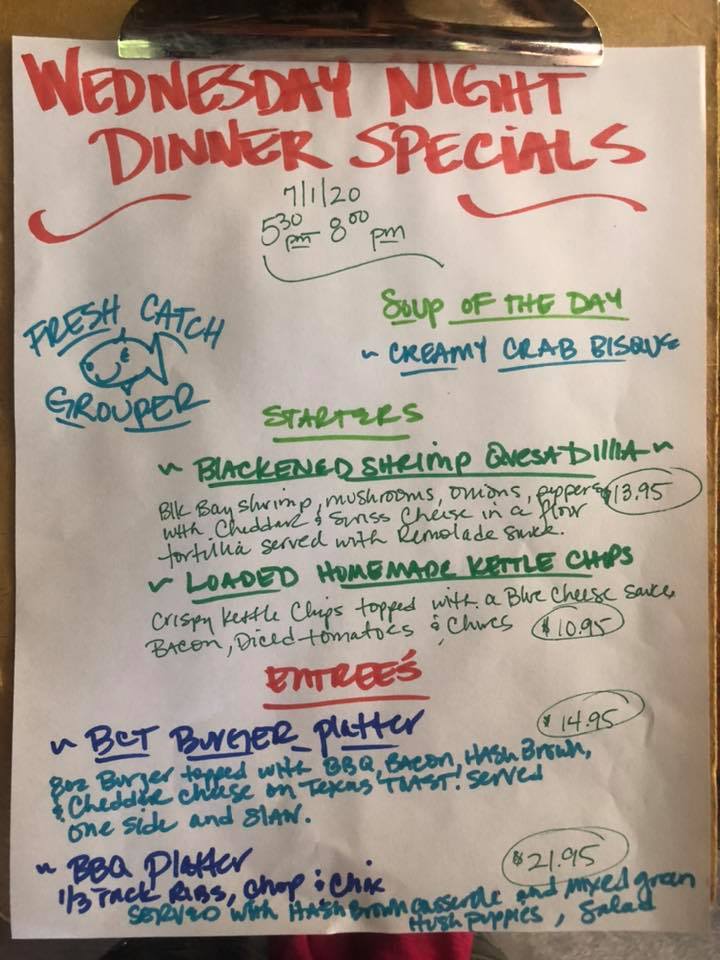 WEDNESDAY NIGHT
DINNER SPECIALS
7/1/20
5:30 pm - 8:00 pm
FRESH CATCH
GROUPER
SOUP OF THE DAY
~ CREAMY CRAB BISQUE
STARTERS
~ BLACKENED SHRIMP QUESADILLIA ~
Blk Bay shrimp, mushrooms, onions, peppers $13.95
with Cheddar & Swiss Cheese in a flour
tortillia served with Remolade sauce.
~ LOADED HOMEMADE KETTLE CHIPS
Crispy Kettle Chips topped with a Blue Cheese sauce,
BACON, Diced tomatoes & Chives $10.95
ENTREES
~ BCT BURGER platter $14.95
8oz Burger topped with BBQ, BACON, HASH Brown,
& Cheddar cheese on Texas TOAST! served
one side and SLAW.
~ BBQ Platter $21.95
1/3 rack RIBS, chop & chix
SERVED with HASH Brown casserole and mixed green
Hush puppies, Salad